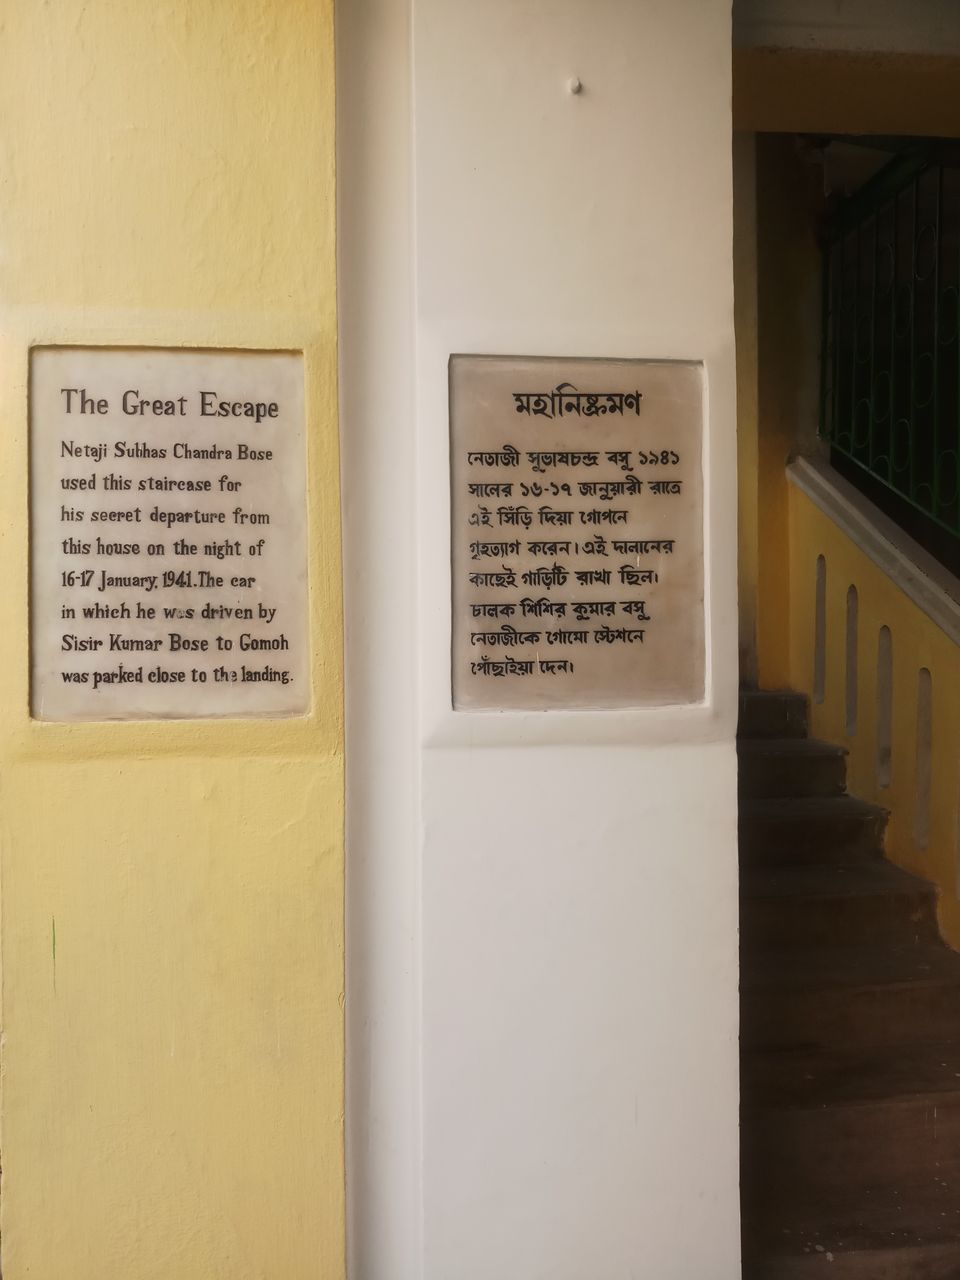 The Great Escape
Netaji Subhas Chandra Bose
used this staircase for
his secret departure from
this house on the night of
16-17 January, 1941. The car
in which he was driven by
Sisir Kumar Bose to Gomoh
was parked close to the landing.
মহানিষ্ক্রমণ
নেতাজী সুভাষচন্দ্র বসু ১৯৪১
সালের ১৬-১৭ জানুয়ারী রাত্রে
এই সিঁড়ি দিয়া গোপনে
গৃহত্যাগ করেন। এই দালানের
কাছেই গাড়িটি রাখা ছিল।
চালক শিশির কুমার বসু
নেতাজীকে গোমো স্টেশনে
পোঁছাইয়া দেন।